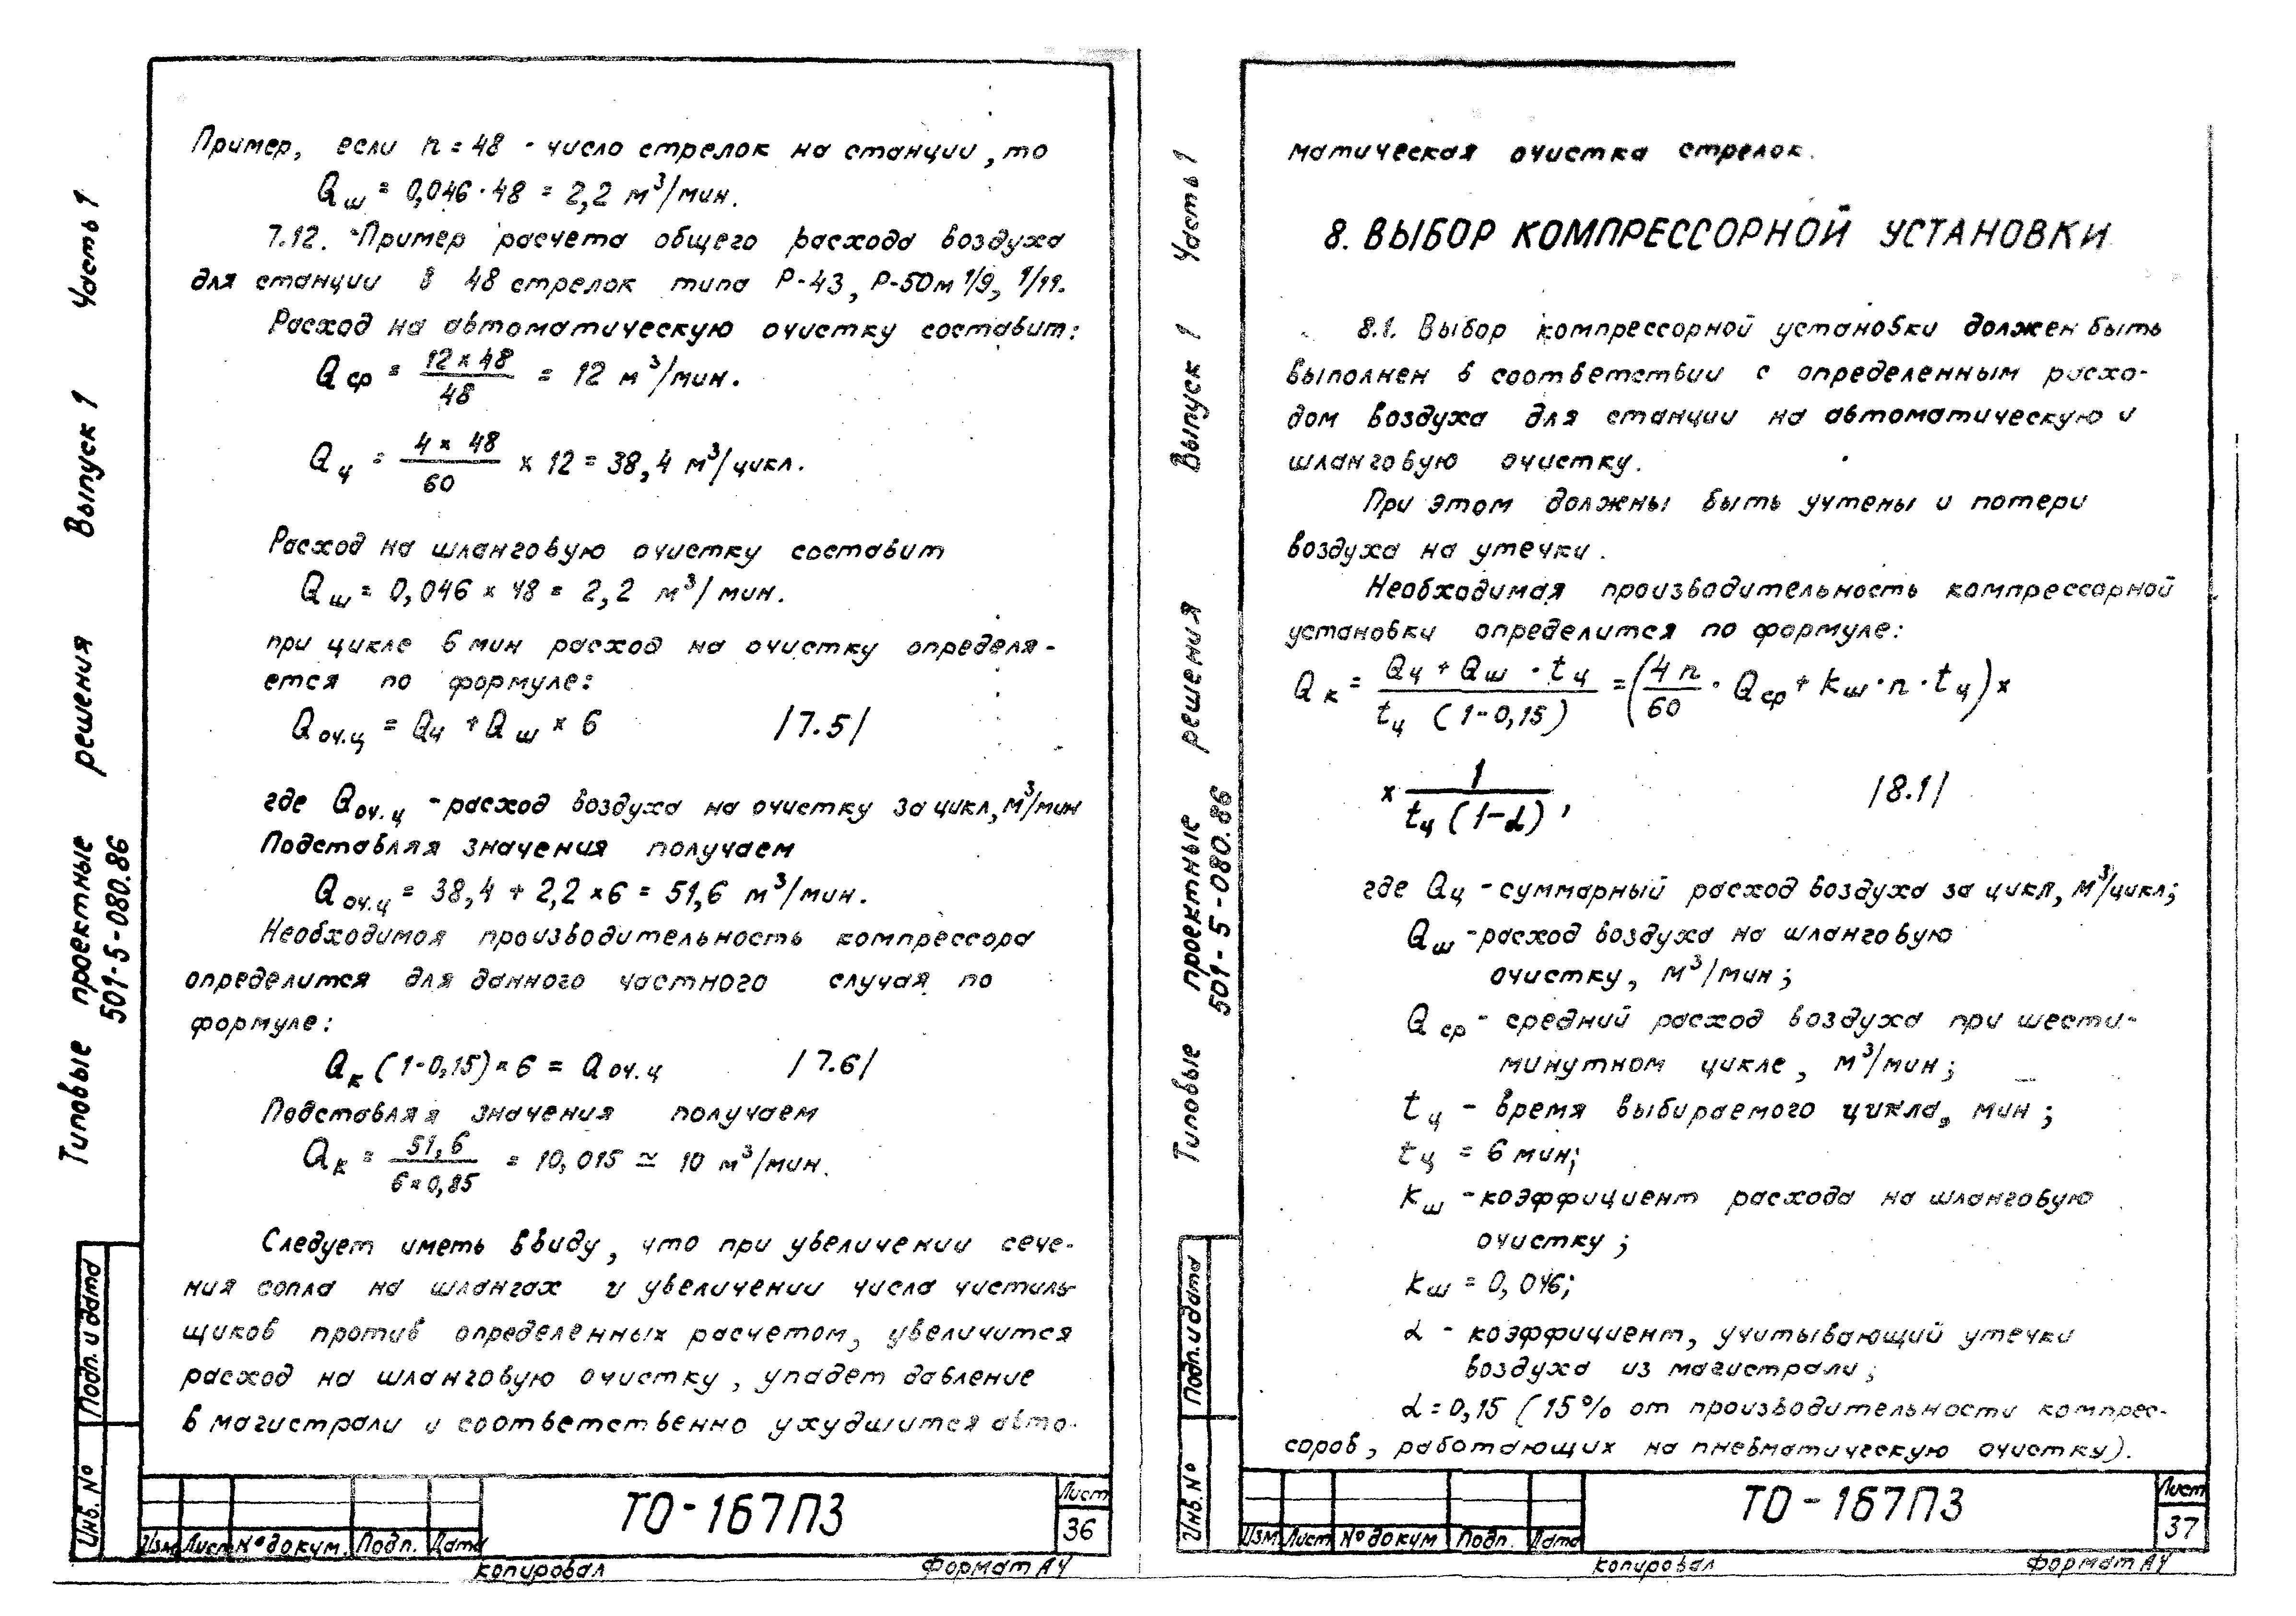 Пример, если n = 48 - число стрелок на станции, то
Qш = 0,046 · 48 = 2,2 м³/мин.
7.12. Пример расчета общего расхода воздуха
для станции в 48 стрелок типа Р-43, Р-50м 1/9, 1/11.
Расход на автоматическую очистку составит:
Qср = 12 × 48 / 48 = 12 м³/мин.
Qц = 4 × 48 / 60 × 12 = 38,4 м³/цикл.
Расход на шланговую очистку составит
Qш = 0,046 × 48 = 2,2 м³/мин.
при цикле 6 мин расход на очистку определя-
ется по формуле:
Qоч.ц = Qц + Qш × 6 /7.5/
где Qоч.ц - расход воздуха на очистку за цикл, м³/мин
Подставляя значения получаем
Qоч.ц = 38,4 + 2,2 × 6 = 51,6 м³/мин.
Необходимая производительность компрессора
определится для данного частного случая по
формуле:
Qк (1-0,15) × 6 = Qоч.ц /7.6/
Подставляя значения получаем
Qк = 51,6 / 6 × 0,85 = 10,015 ≃ 10 м³/мин.
Следует иметь ввиду, что при увеличении сече-
ния сопла на шлангах и увеличении числа чистиль-
щиков против определенных расчетом, увеличится
расход на шланговую очистку, упадет давление
в магистрали и соответственно ухудшится авто-
Типовые проектные решения Выпуск 1 Часть 1
501-5-080.86
Подп. и дата
Инв. №
Изм Лист № докум. Подп. Дата
ТО-167ПЗ
Лист
36
копировал Формат А4
матическая очистка стрелок.
8. ВЫБОР КОМПРЕССОРНОЙ УСТАНОВКИ
8.1. Выбор компрессорной установки должен быть
выполнен в соответствии с определенным расхо-
дом воздуха для станции на автоматическую и
шланговую очистку.
При этом должны быть учтены и потери
воздуха на утечки.
Необходимая производительность компрессорной
установки определится по формуле:
Qк = Qц + Qш · tц / tц (1-0,15) = (4n / 60 · Qср + kш · n · tц) ×
× 1 / tц (1-α) , /8.1/
где Qц - суммарный расход воздуха за цикл, м³/цикл;
Qш - расход воздуха на шланговую
очистку, м³/мин;
Qср - средний расход воздуха при шести-
минутном цикле, м³/мин;
tц - время выбираемого цикла, мин;
tц = 6 мин;
kш - коэффициент расхода на шланговую
очистку;
kш = 0,046;
α - коэффициент, учитывающий утечки
воздуха из магистрали;
α = 0,15 (15% от производительности компрес-
соров, работающих на пневматическую очистку).
Типовые проектные решения Выпуск 1 Часть 1
501-5-080.86
Подп. и дата
Инв. №
Изм Лист № докум Подп. Дата
ТО-167ПЗ
Лист
37
копировал Формат А4